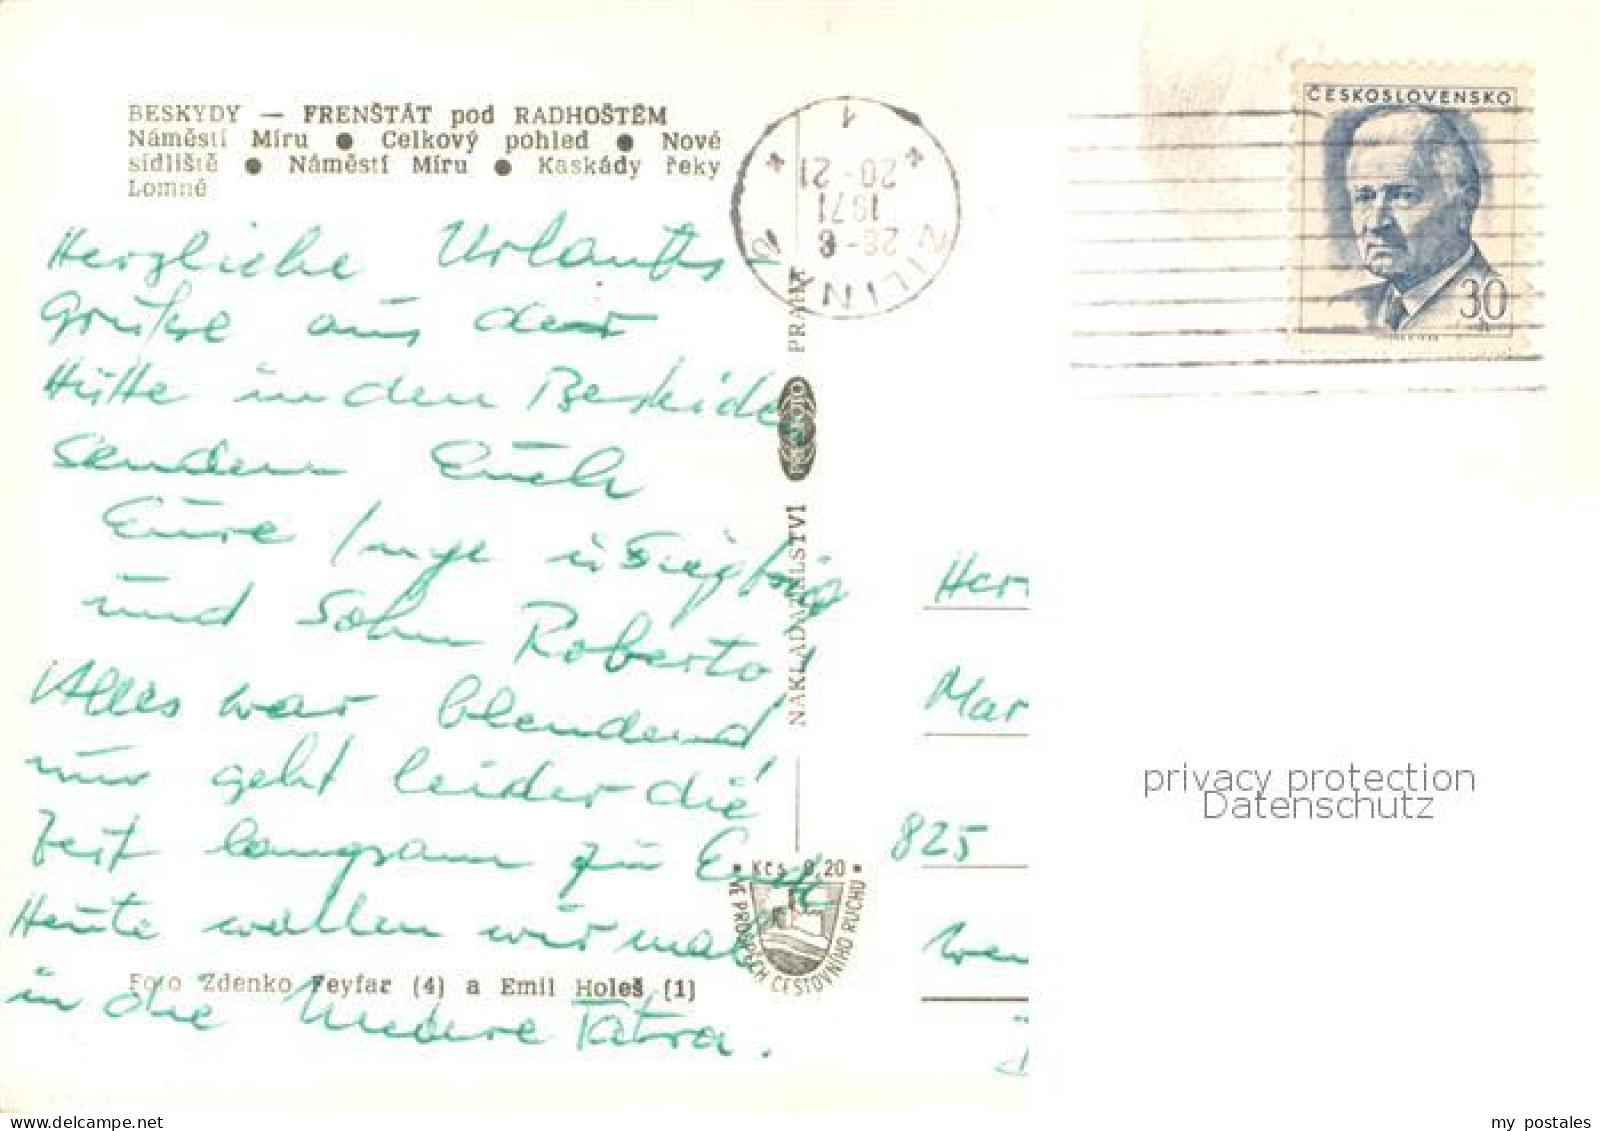 BESKYDY — FRENŠTÁT pod RADHOŠTĚM
Náměstí Míru ● Celkový pohled ● Nové
sídliště ● Náměstí Míru ● Kaskády řeky
Lomné
Herzliche Urlaubs
Grüße aus der
Hütte in den Beskiden
senden Euch
Eure Inge u Siegfrig
und Sohn Roberto!
Alles war blendend
nur geht leider die
Zeit langsam zu Ende
Heute wollen wir mal
in die Niedere Tatra.
Foto Zdenko Feyfar (4) a Emil Holeš (1)
ŽILINA 2
28-8
1971
20-21
1
NAKLADATELSTVÍ PRESSFOTO PRAHA
• Kčs 0,20 •
VE PROSPĚCH CESTOVNÍHO RUCHU
ČESKOSLOVENSKO
30
h
Herr
Mar
825
privacy protection
Datenschutz
© akpool.de
my_postales